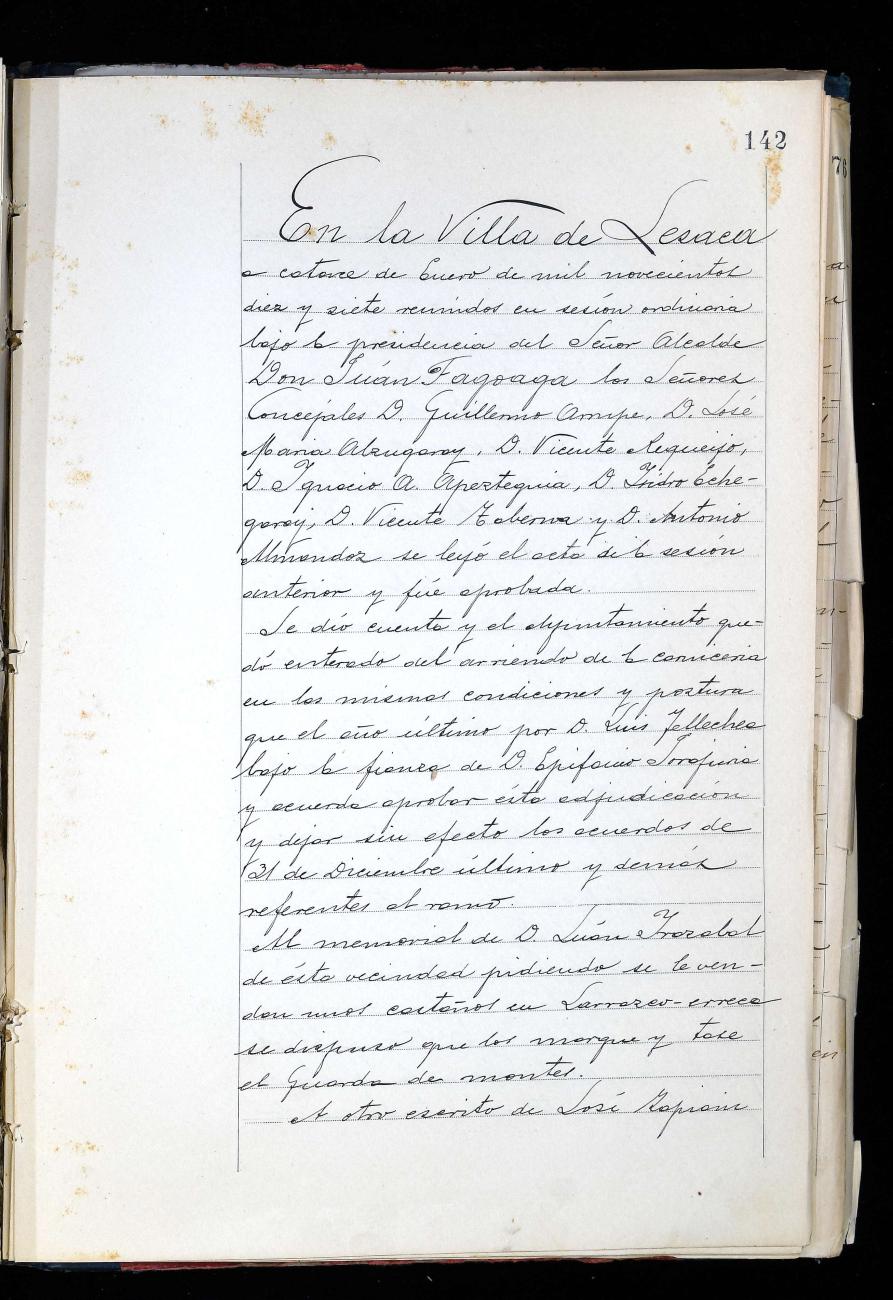 142
En la Villa de Lesaca
a catorce de Enero de mil novecientos
diez y siete reunidos en sesión ordinaria
bajo la presidencia del Señor Alcalde
Don Juán Fagoaga los Señores
Concejales D. Guillermo Arrupe, D. José
Maria Alzugaray, D. Vicente Requeijo,
D. Ignacio A. Apezteguia, D. Isidro Eche-
garay, D. Vicente Taberna y D. Antonio
Almandoz se leyó el acta de la sesión
anterior y fué aprobada.
Se dió cuenta y el Ayuntamiento que-
dó enterado del arriendo de la carniceria
en las mismas condiciones y postura
que el año último por D. Luis Tellechea
bajo la fianza de D. Epifanio
y acuerda aprobar ésta adjudicación
y dejar sin efecto los acuerdos de
31 de Diciembre último y demás
referentes al ramo.
Al memorial de D. Juán Irazabal
de ésta vecindad pidiendo se le ven-
dan unos castaños en Larrazco-erreca
se dispuso que los marque y tase
el Guarda de montes.
A otro escrito de José Zapiain